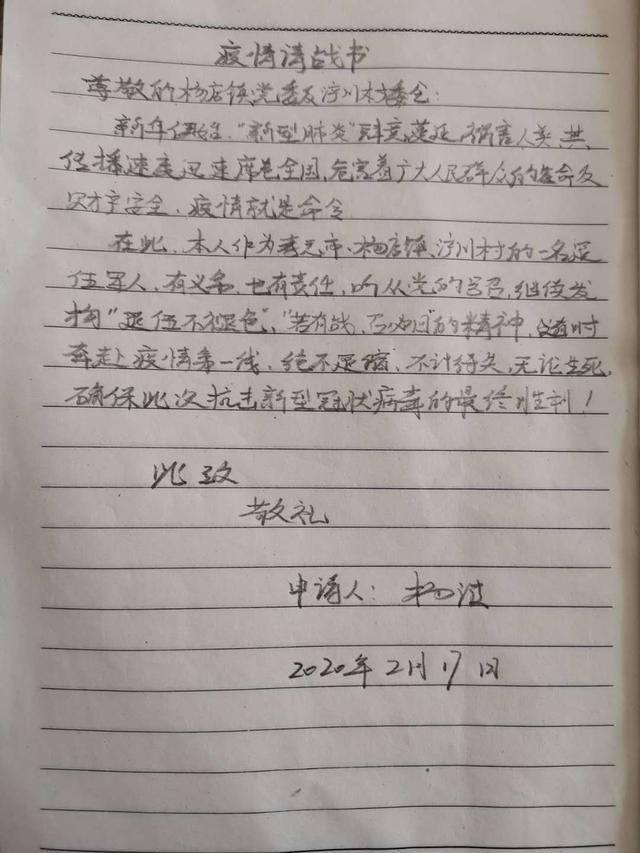 疫情请战书
尊敬的杨店镇党委及澴川村委会:
新年伊始,"新型肺炎"肆意蔓延,祸害人类,其
传播速度迅速席卷全国,危害着广大人民群众的生命及
财产安全,疫情就是命令
在此,本人作为孝感市、杨店镇、村的一名退
伍军人,有义务,也有责任,听从党的号召,继续发
扬"退伍不褪色","若有战,召必回"的精神,随时
奔赴疫情第一线,绝不退缩,不计得失,无论生死,
确保此次抗击新型冠状病毒的最终胜利!
此致
敬礼
申请人:杨波
2020年2月17日